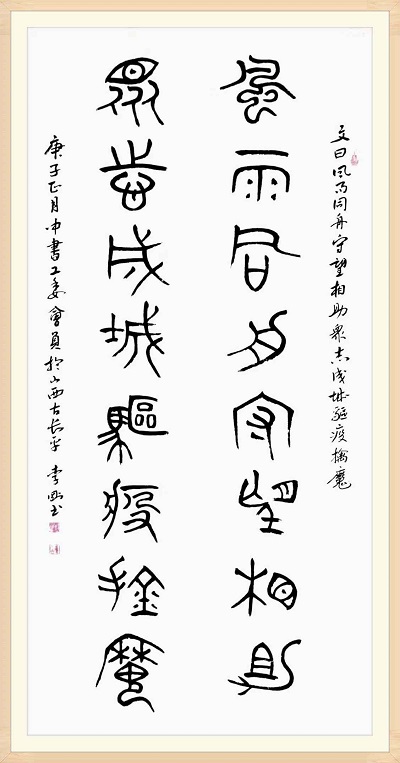 文曰風雨同舟守望相助衆志成城驅疫擒魔
風雨同舟守望相助
衆志成城驅疫擒魔
庚子正月中書工委會員於山西古長平李
書